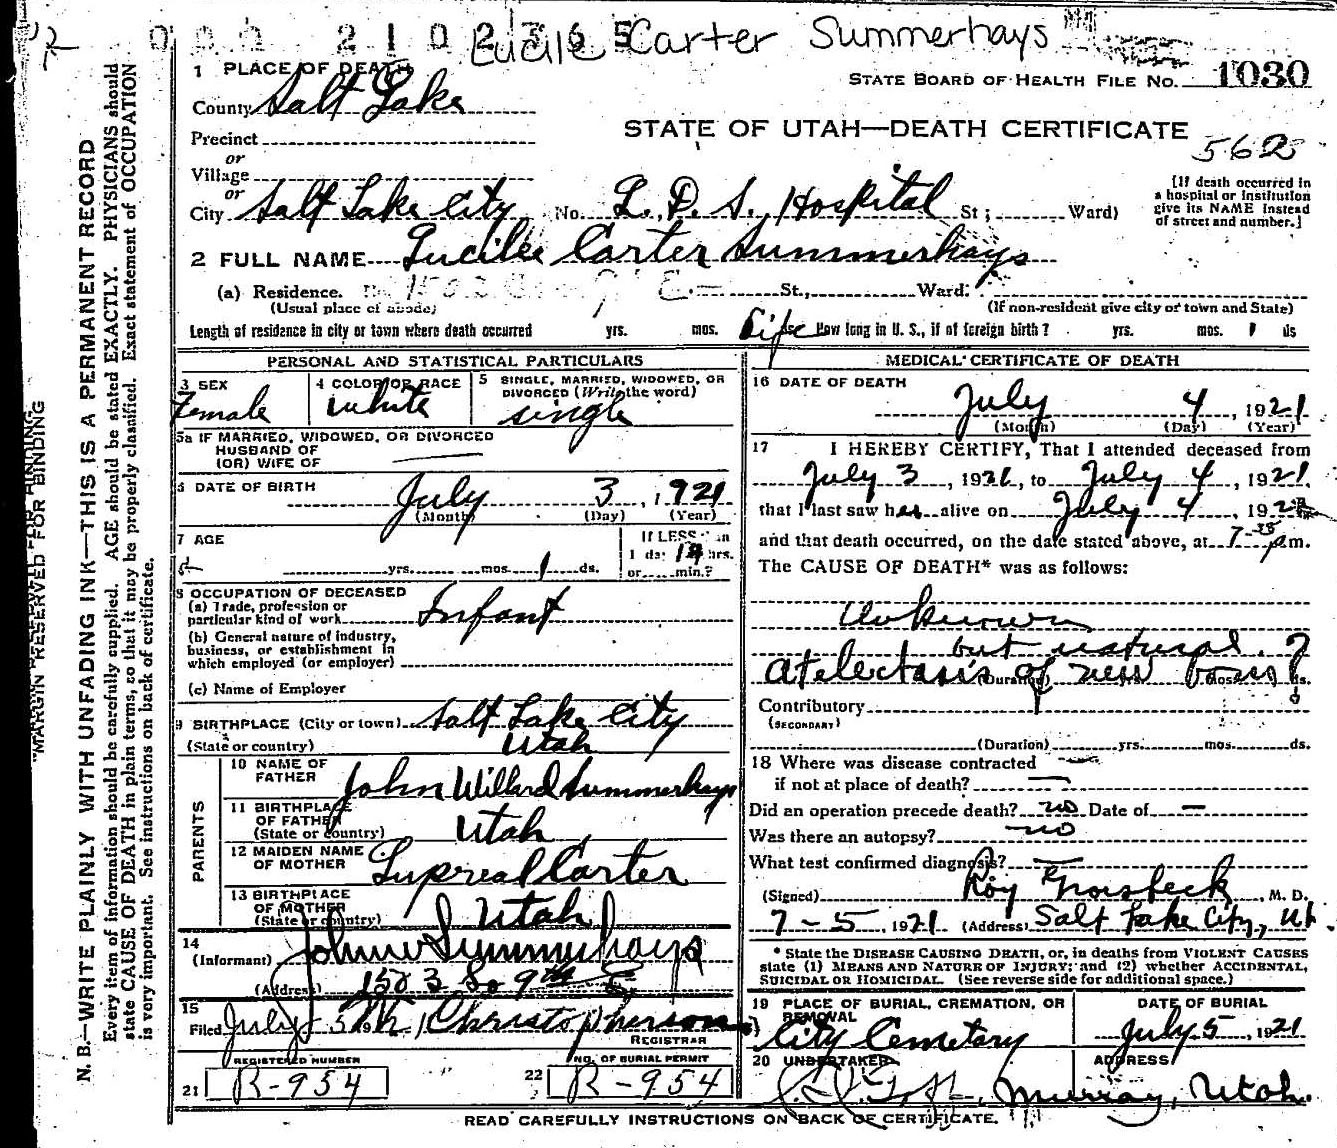 Lucile Carter Summerhays
STATE BOARD OF HEALTH FILE NO. 1030
1 PLACE OF DEATH
County Salt Lake
STATE OF UTAH—DEATH CERTIFICATE
Precinct
or
Village
or
City Salt Lake City No. L. D. S. Hospital St; Ward)
[If death occurred in
a hospital or institution
give its NAME instead
of street and number.]
2 FULL NAME Lucile Carter Summerhays
(a) Residence. St., Ward.
(Usual place of abode)
(If non-resident give city or town and State)
Length of residence in city or town where death occurred yrs. mos. Life How long in U. S., if of foreign birth? yrs. mos. ds
PERSONAL AND STATISTICAL PARTICULARS
3 SEX
Female
4 COLOR OR RACE
White
5 SINGLE, MARRIED, WIDOWED, OR
DIVORCED (Write the word)
single
5a IF MARRIED, WIDOWED, OR DIVORCED
HUSBAND OF
(OR) WIFE OF
6 DATE OF BIRTH
July 3, 1921
(Month) (Day) (Year)
7 AGE
yrs. mos. 1 ds.
If LESS than
1 day hrs.
or min.?
8 OCCUPATION OF DECEASED
(a) Trade, profession or
particular kind of work Infant
(b) General nature of industry,
business, or establishment in
which employed (or employer)
(c) Name of Employer
9 BIRTHPLACE (City or town) Salt Lake City
(State or country) Utah
PARENTS
10 NAME OF
FATHER John Willard Summerhays
11 BIRTHPLACE
OF FATHER
(State or country) Utah
12 MAIDEN NAME
OF MOTHER Lupreal Carter
13 BIRTHPLACE
OF MOTHER
(State or country) Utah
14
(Informant) John W Summerhays
(Address) 1503 So 9th E
15
Filed July 5 Christopherson
REGISTRAR
REGISTERED NUMBER
21 R-954
NO. OF BURIAL PERMIT
22 R-954
MEDICAL CERTIFICATE OF DEATH
16 DATE OF DEATH
July 4, 1921
(Month) (Day) (Year)
17 I HEREBY CERTIFY, That I attended deceased from
July 3, 1921, to July 4, 1921
that I last saw her alive on July 4, 192
and that death occurred, on the date stated above, at 7-35 p.m.
The CAUSE OF DEATH* was as follows:
Unknown
but natural. ?
Atelectasis of new born
(Duration) mos. ds.
Contributory
(SECONDARY)
(Duration) yrs. mos. ds.
18 Where was disease contracted
if not at place of death?
Did an operation precede death? no Date of —
Was there an autopsy? no
What test confirmed diagnosis?
(Signed) Roy Groesbeck, M. D.
7-5, 1921 (Address) Salt Lake City, Ut.
* State the DISEASE CAUSING DEATH, or, in deaths from VIOLENT CAUSES
state (1) MEANS AND NATURE OF INJURY; and (2) whether ACCIDENTAL,
SUICIDAL OR HOMICIDAL. (See reverse side for additional space.)
19 PLACE OF BURIAL, CREMATION, OR
REMOVAL
City Cemetary
DATE OF BURIAL
July 5, 1921
20 UNDERTAKER
ADDRESS
Murray, Utah.
READ CAREFULLY INSTRUCTIONS ON BACK OF CERTIFICATE.
MARGIN RESERVED FOR BINDING
N. B.—WRITE PLAINLY WITH UNFADING INK—THIS IS A PERMANENT RECORD
Every item of information should be carefully supplied. AGE should be stated EXACTLY. PHYSICIANS should
state CAUSE OF DEATH in plain terms, so that it may be properly classified. Exact statement of OCCUPATION
is very important. See instructions on back of certificate.